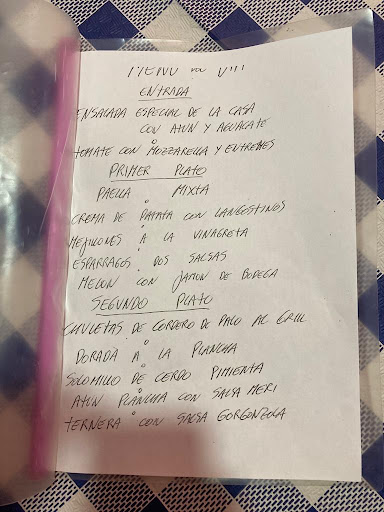 MENU
ENTRADA
ENSALADA ESPECIAL DE LA CASA
CON ATUN Y AGUACATE
o
TOMATE CON MOZZARELLA Y
PRIMER PLATO
PAELLA MIXTA
CREMA DE PATATA CON LANGOSTINOS
MEJILLONES A LA VINAGRETA
ESPARRAGOS DOS SALSAS
MELON CON JAMON DE BODEGA
SEGUNDO PLATO
CHULETAS DE CORDERO DE PALO AL GRILL
o
DORADA A LA PLANCHA
SOLOMILLO DE CERDO PIMIENTA
ATUN PLANCHA CON SALSA MERI
TERNERA CON SALSA GORGONZOLA